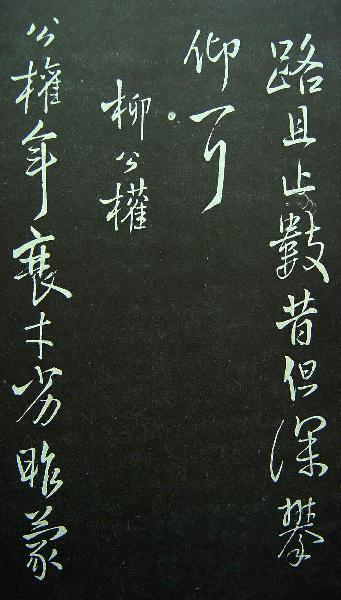 路且止數昔但深攀
仰
柳公權
公權年衰才劣昨蒙